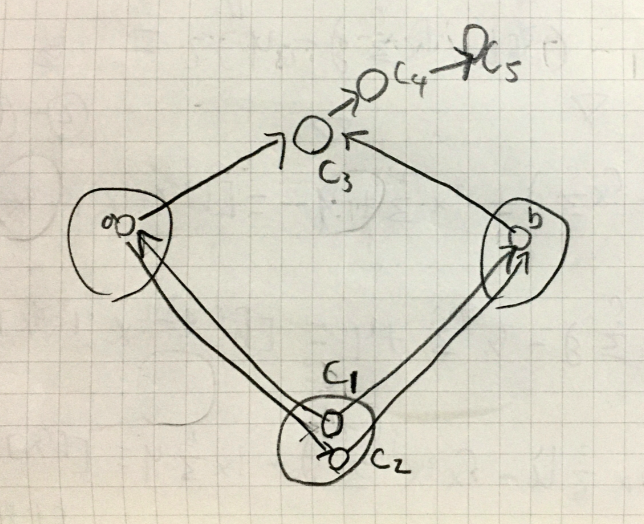 C4
C5
C3
a
b
C1
C2